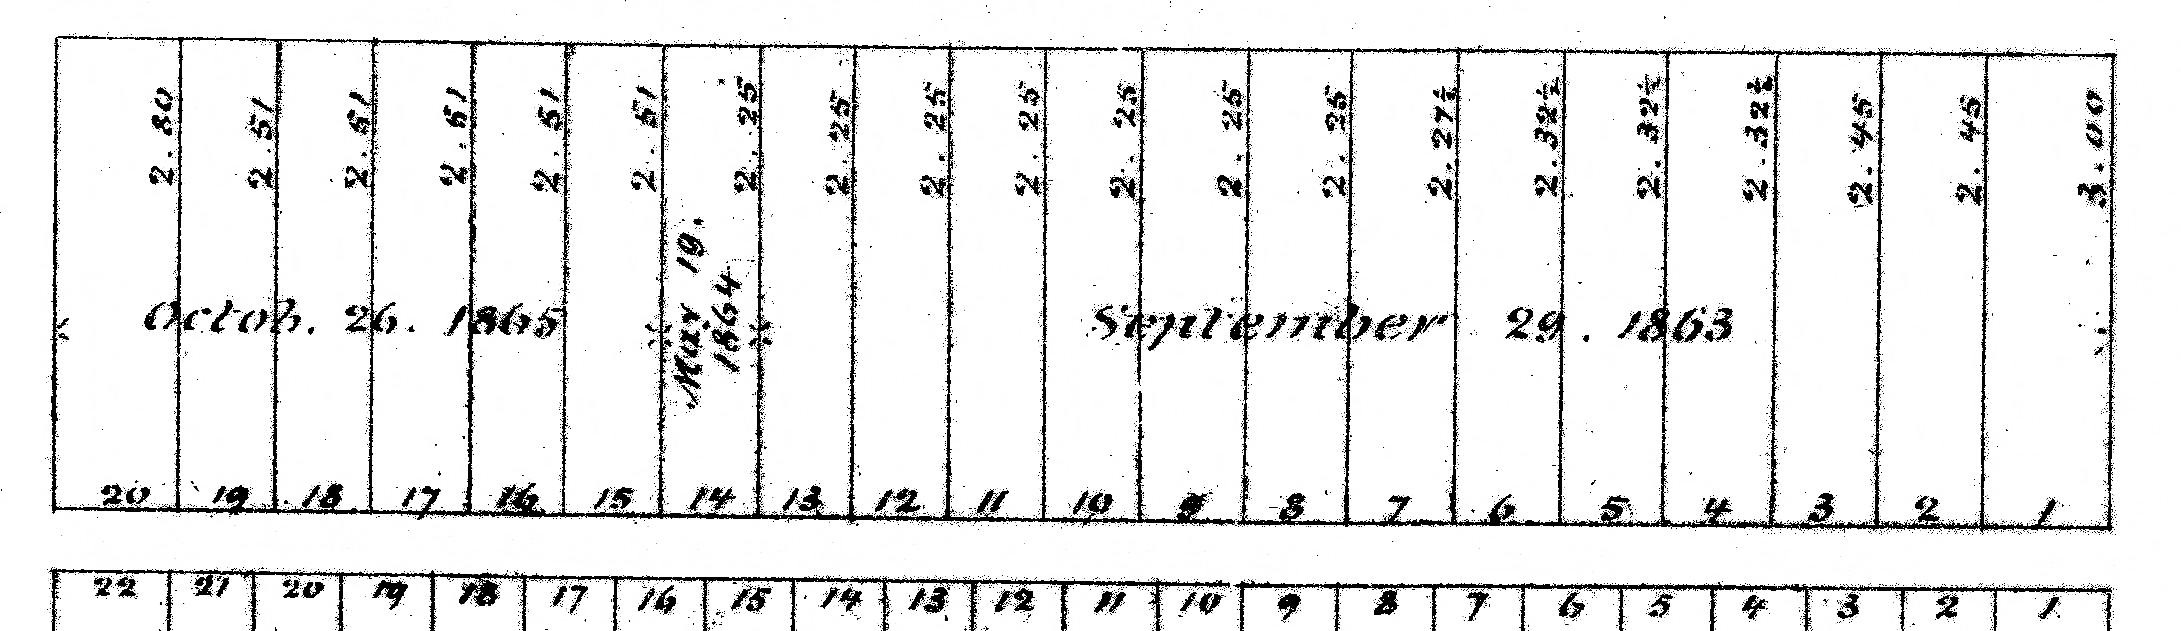 2.80 2.51 2.51 2.51 2.51 2.51 2.25 2.25 2.25 2.25 2.25 2.25 2.25 2.27½ 2.32½ 2.32½ 2.32½ 2.45 2.45 3.00
Octob. 26. 1865
May 19.
1864
September 29. 1863
20 19 18 17 16 15 14 13 12 11 10 9 8 7 6 5 4 3 2 1
22 21 20 19 18 17 16 15 14 13 12 11 10 9 8 7 6 5 4 3 2 1